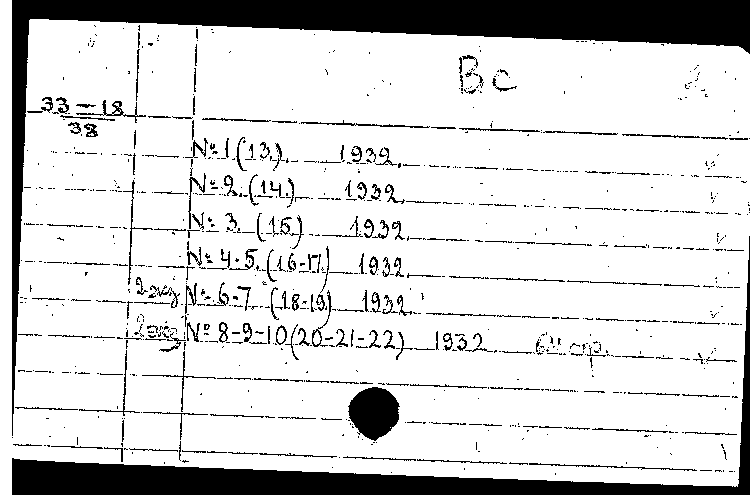 Вс
33-18
38
№ 1 (13.). 1932.
№ 2. (14.) 1932.
№ 3. (15.) 1932.
№ 4-5. (16-17.) 1932.
2 экз № 6-7 (18-19) 1932.
2 экз № 8-9-10 (20-21-22) 1932